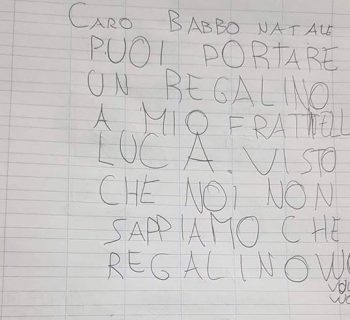 CARO BABBO NATALE
PUOI PORTARE
UN REGALINO
A MIO
LUCA. VISTO
CHE NOI NON
SAPPIAMO CHE
REGALINO